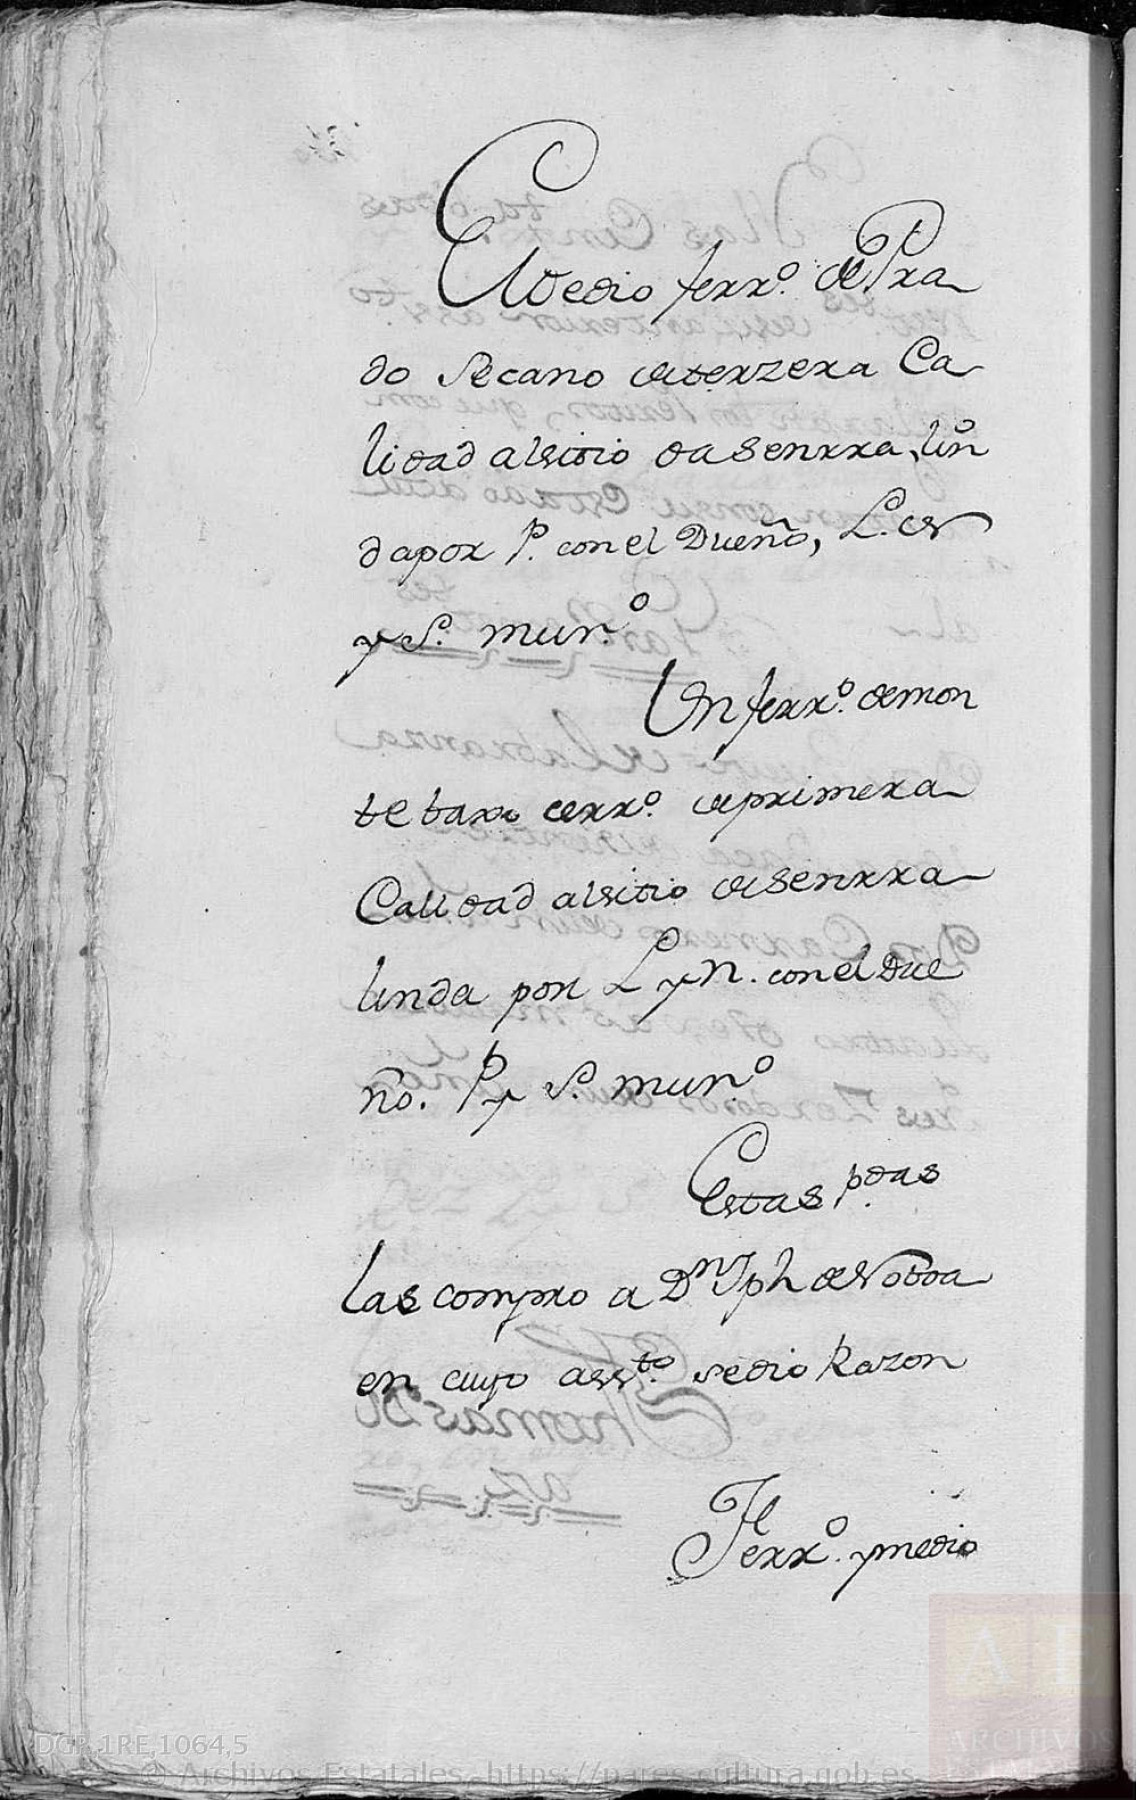 Medio ferrº. de Pra
do Secano de terzera Ca
lidad alsitio da Senrra, lin
da por P. con el Dueño, L. N
y S. mun.º
Un ferrº. de mon
te baxo cerrº. de primera
Calidad alsitio de Senrra
linda por L y N. con el Due
ño. P y S. mun.º
Estas p.das
las compro a Dn Jph de Noboa
en cuyo asst.to se dio Razon
Ferrº. y medio
DGP,1RE,1064,5
© Archivos Estatales, https://pares.cultura.gob.es
AE
ARCHIVOS